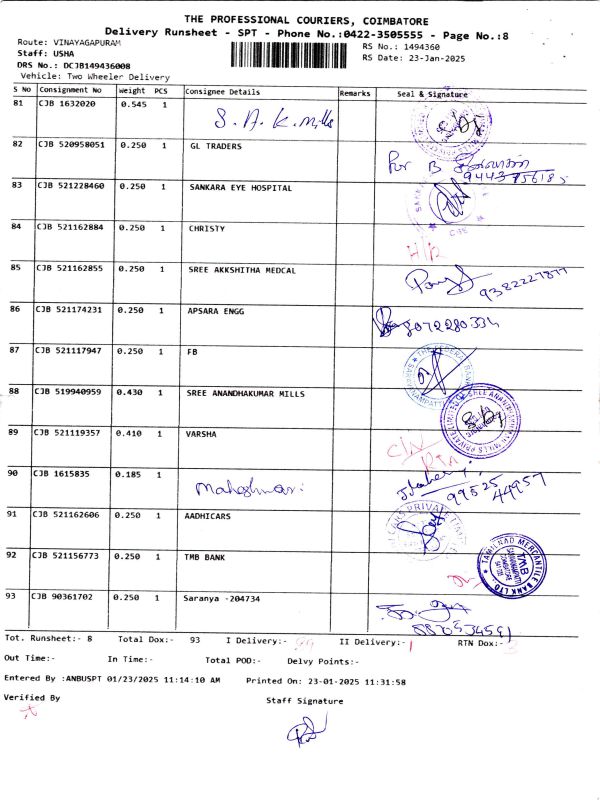 THE PROFESSIONAL COURIERS, COIMBATORE
Delivery Runsheet - SPT - Phone No.:0422-3505555 - Page No.:8
Route: VINAYAGAPURAM
RS No.: 1494360
Staff: USHA
RS Date: 23-Jan-2025
DRS No.: DCJB149436008
Vehicle: Two Wheeler Delivery
S No Consignment No Weight PCS Consignee Details Remarks Seal & Signature
81 CJB 1632020 0.545 1 S.A.K.Mills
82 CJB 520958051 0.250 1 GL TRADERS
83 CJB 521228460 0.250 1 SANKARA EYE HOSPITAL
84 CJB 521162884 0.250 1 CHRISTY
85 CJB 521162855 0.250 1 SREE AKKSHITHA MEDCAL
86 CJB 521174231 0.250 1 APSARA ENGG
87 CJB 521117947 0.250 1 FB
88 CJB 519940959 0.430 1 SREE ANANDHAKUMAR MILLS
89 CJB 521119357 0.410 1 VARSHA
90 CJB 1615835 0.185 1 Maheshwari 99525 44957
91 CJB 521162606 0.250 1 AADHICARS
92 CJB 521156773 0.250 1 TMB BANK TAMILNAD MERCANTILE BANK LTD. TMB
93 CJB 90361702 0.250 1 Saranya -204734
Tot. Runsheet:- 8 Total Dox:- 93 I Delivery:- II Delivery:- 1 RTN Dox:- 3
Out Time:- In Time:- Total POD:- Delvy Points:-
Entered By :ANBUSPT 01/23/2025 11:14:10 AM Printed On: 23-01-2025 11:31:58
Verified By Staff Signature